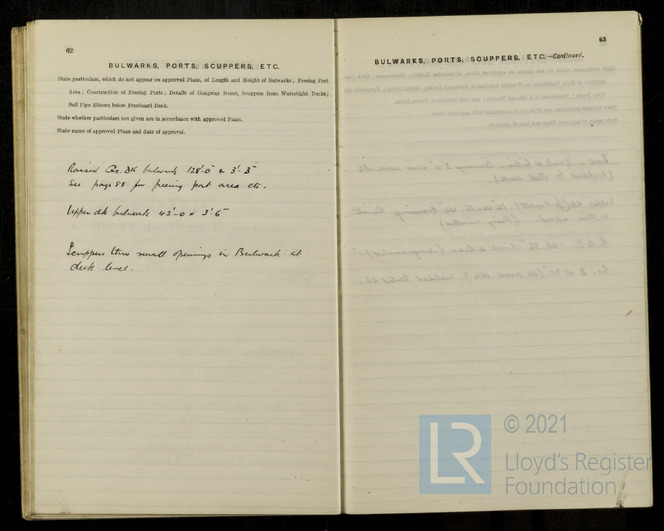 62
BULWARKS, PORTS, SCUPPERS, ETC.
State particulars, which do not appear on approved Plans, of Length and Height of Bulwarks; Freeing Port
Area; Construction of Freeing Ports; Details of Gangway Doors, Scuppers from Watertight Decks;
Soil Pipe Elbows below Freeboard Deck.
State whether particulars not given are in accordance with approved Plans.
State name of approved Plans and date of approval.
Raised Qr. Dk bulwark 128'-0" x 3'-3"
See page 88 for freeing port area etc.
Upper dk bulwark 42'-0 x 3'-6"
Scuppers thro small openings in Bulwark at
deck level.
63
BULWARKS, PORTS, SCUPPERS, ETC.—Continued.
LR
© 2021
Lloyd's Register
Foundation